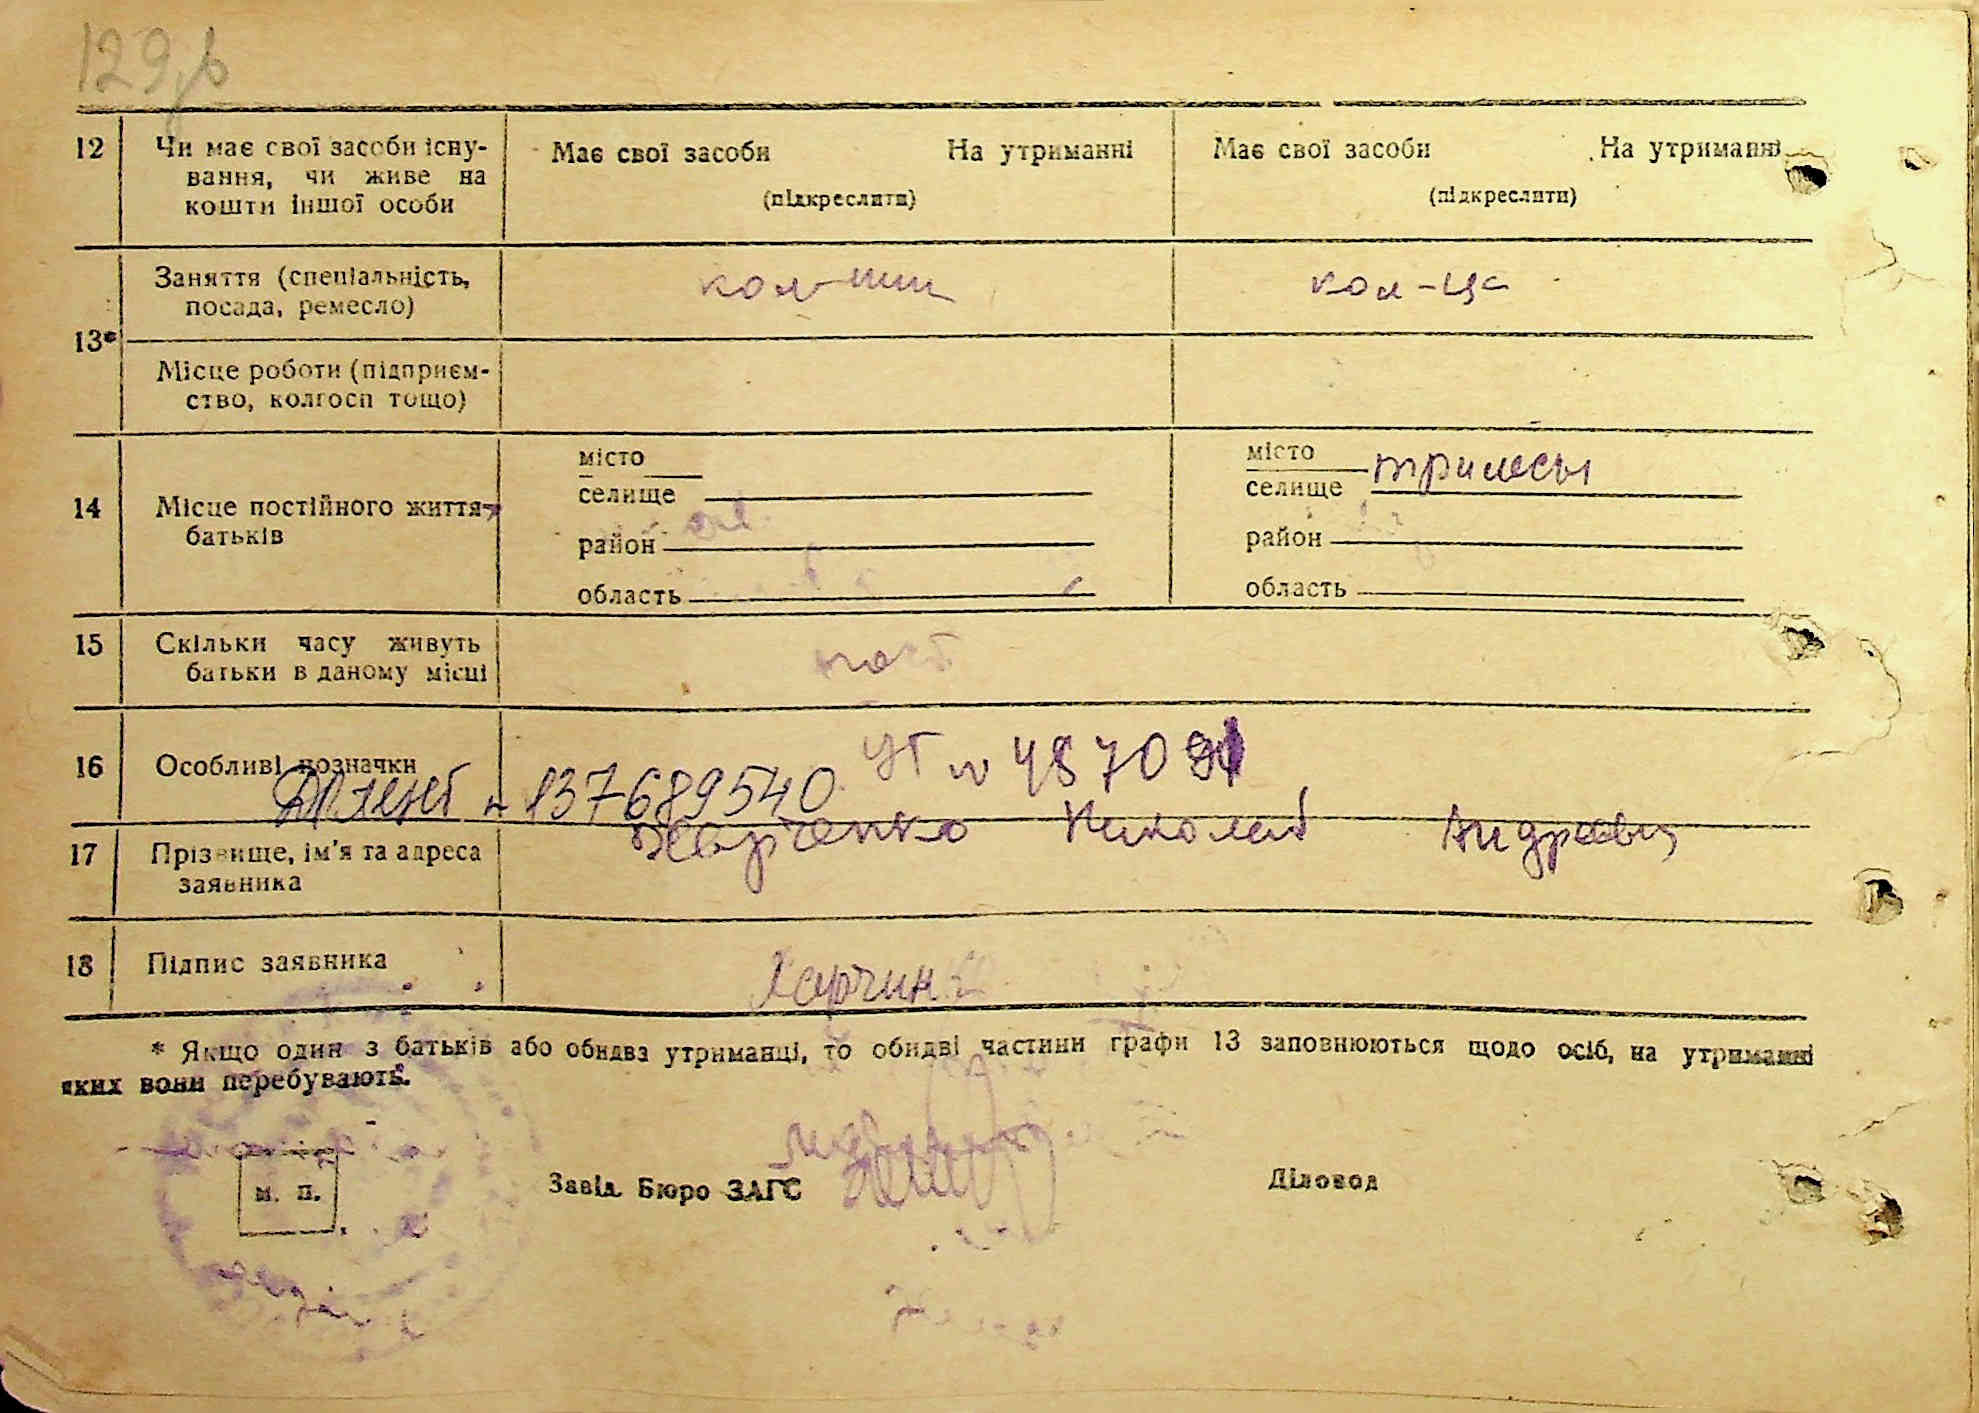 129
12 Чи має свої засоби існу- Має свої засоби На утриманні Має свої засоби На утриманні
вання, чи живе на (підкреслити) (підкреслити)
кошти іншої особи
Заняття (спеціальність, кол-ник кол-ця
посада, ремесло)
13*
Місце роботи (підприєм-
ство, колгосп тощо)
місто місто
селище селище трилесы
14 Місце постійного життя
батьків район район
область область
15 Скільки часу живуть
батьки в даному місці пост
16 Особливі позначки УГ №
№ 137689540
17 Прізвище, ім'я та адреса Харченко Николай Андреевич
заявника
18 Підпис заявника
* Якщо один з батьків або обидва утриманці, то обидві частини графи 13 заповнюються щодо осіб, на утриманні
яких вони перебувають.
м. п. Завід. Бюро ЗАГС Діловод